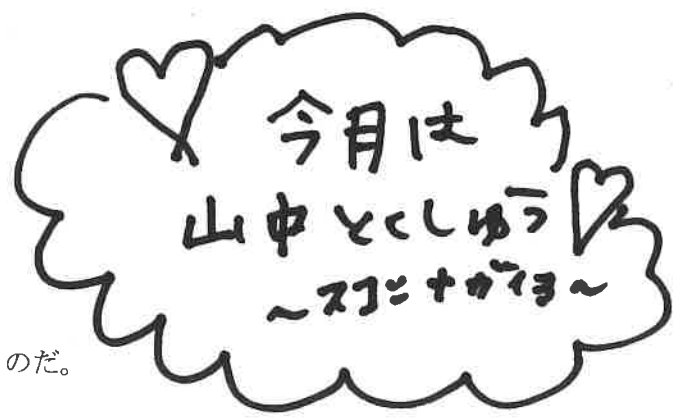 今月は
山中とくしゅう
～スコシナガイヨ～
のだ。